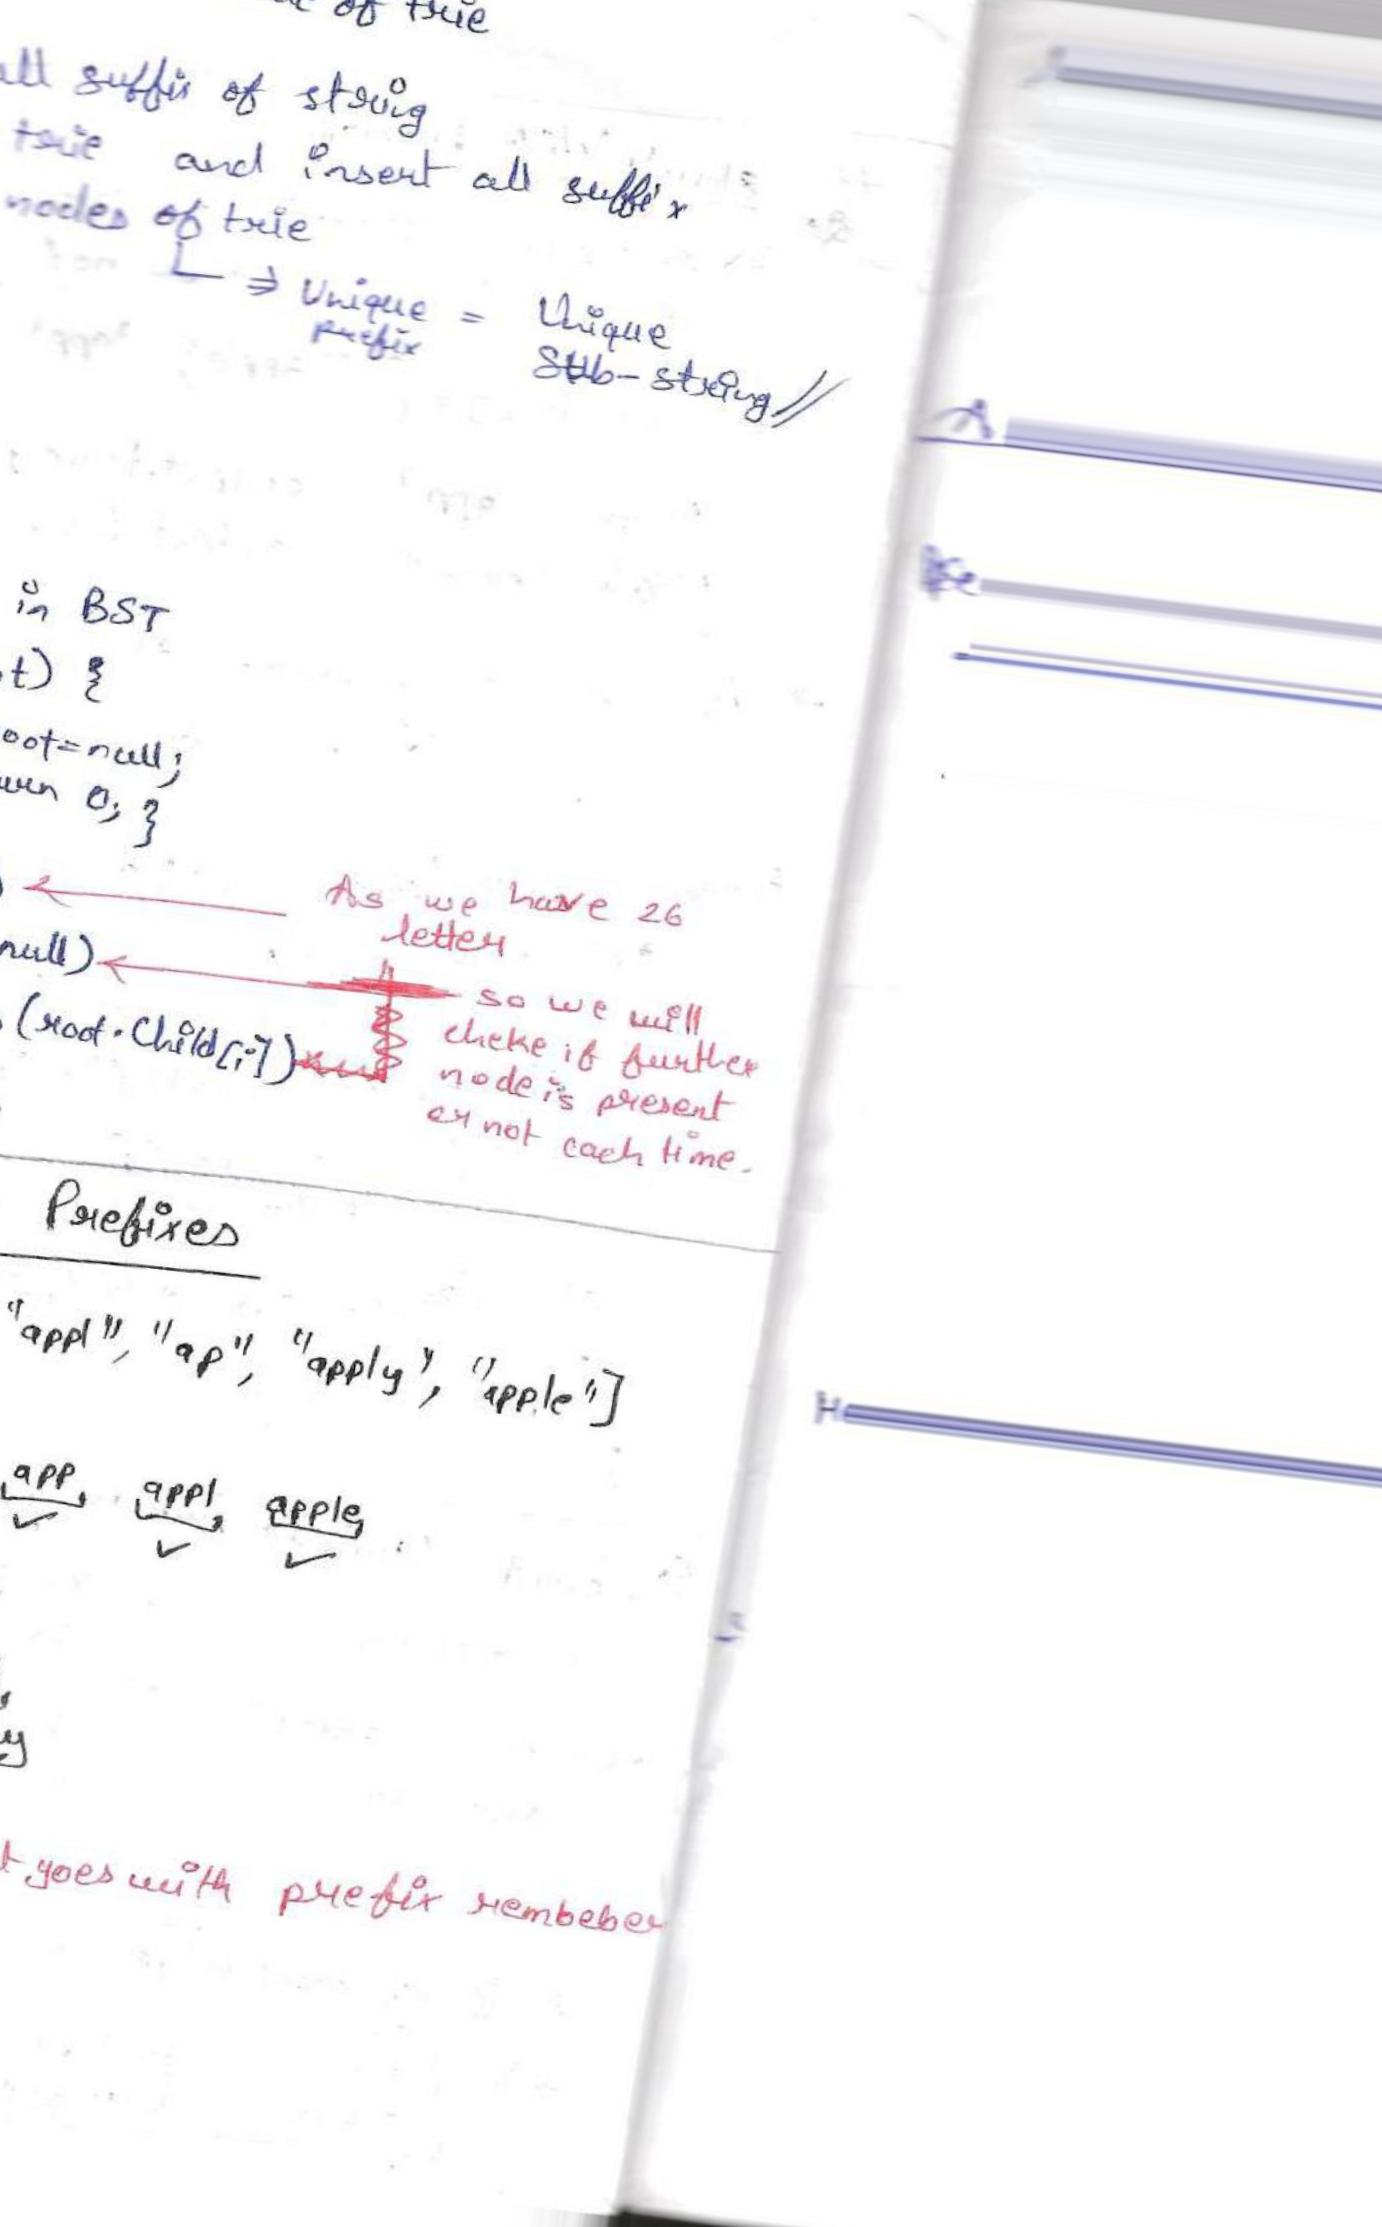 of trie
all suffix of string
trie and insert all suffix
nodes of trie
⇒ Unique = Unique
prefix Sub-string //
in BST
t) {
oot=null;
urn 0; }
) ← As we have 26
letter
null) ← so we will
cheke if further
(root.Child[i])
node is present
or not each time.
Prefixes
"appl", "ap", "apply", "apple"]
app, appl, apple
y
t goes with prefix rembeber